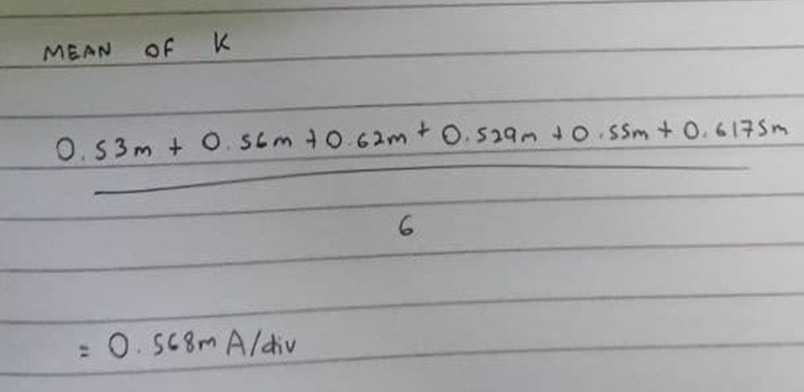 MEAN OF K
0.53m + 0.56m + 0.62m + 0.529m + 0.55m + 0.6175m
6
= 0.568m A/div